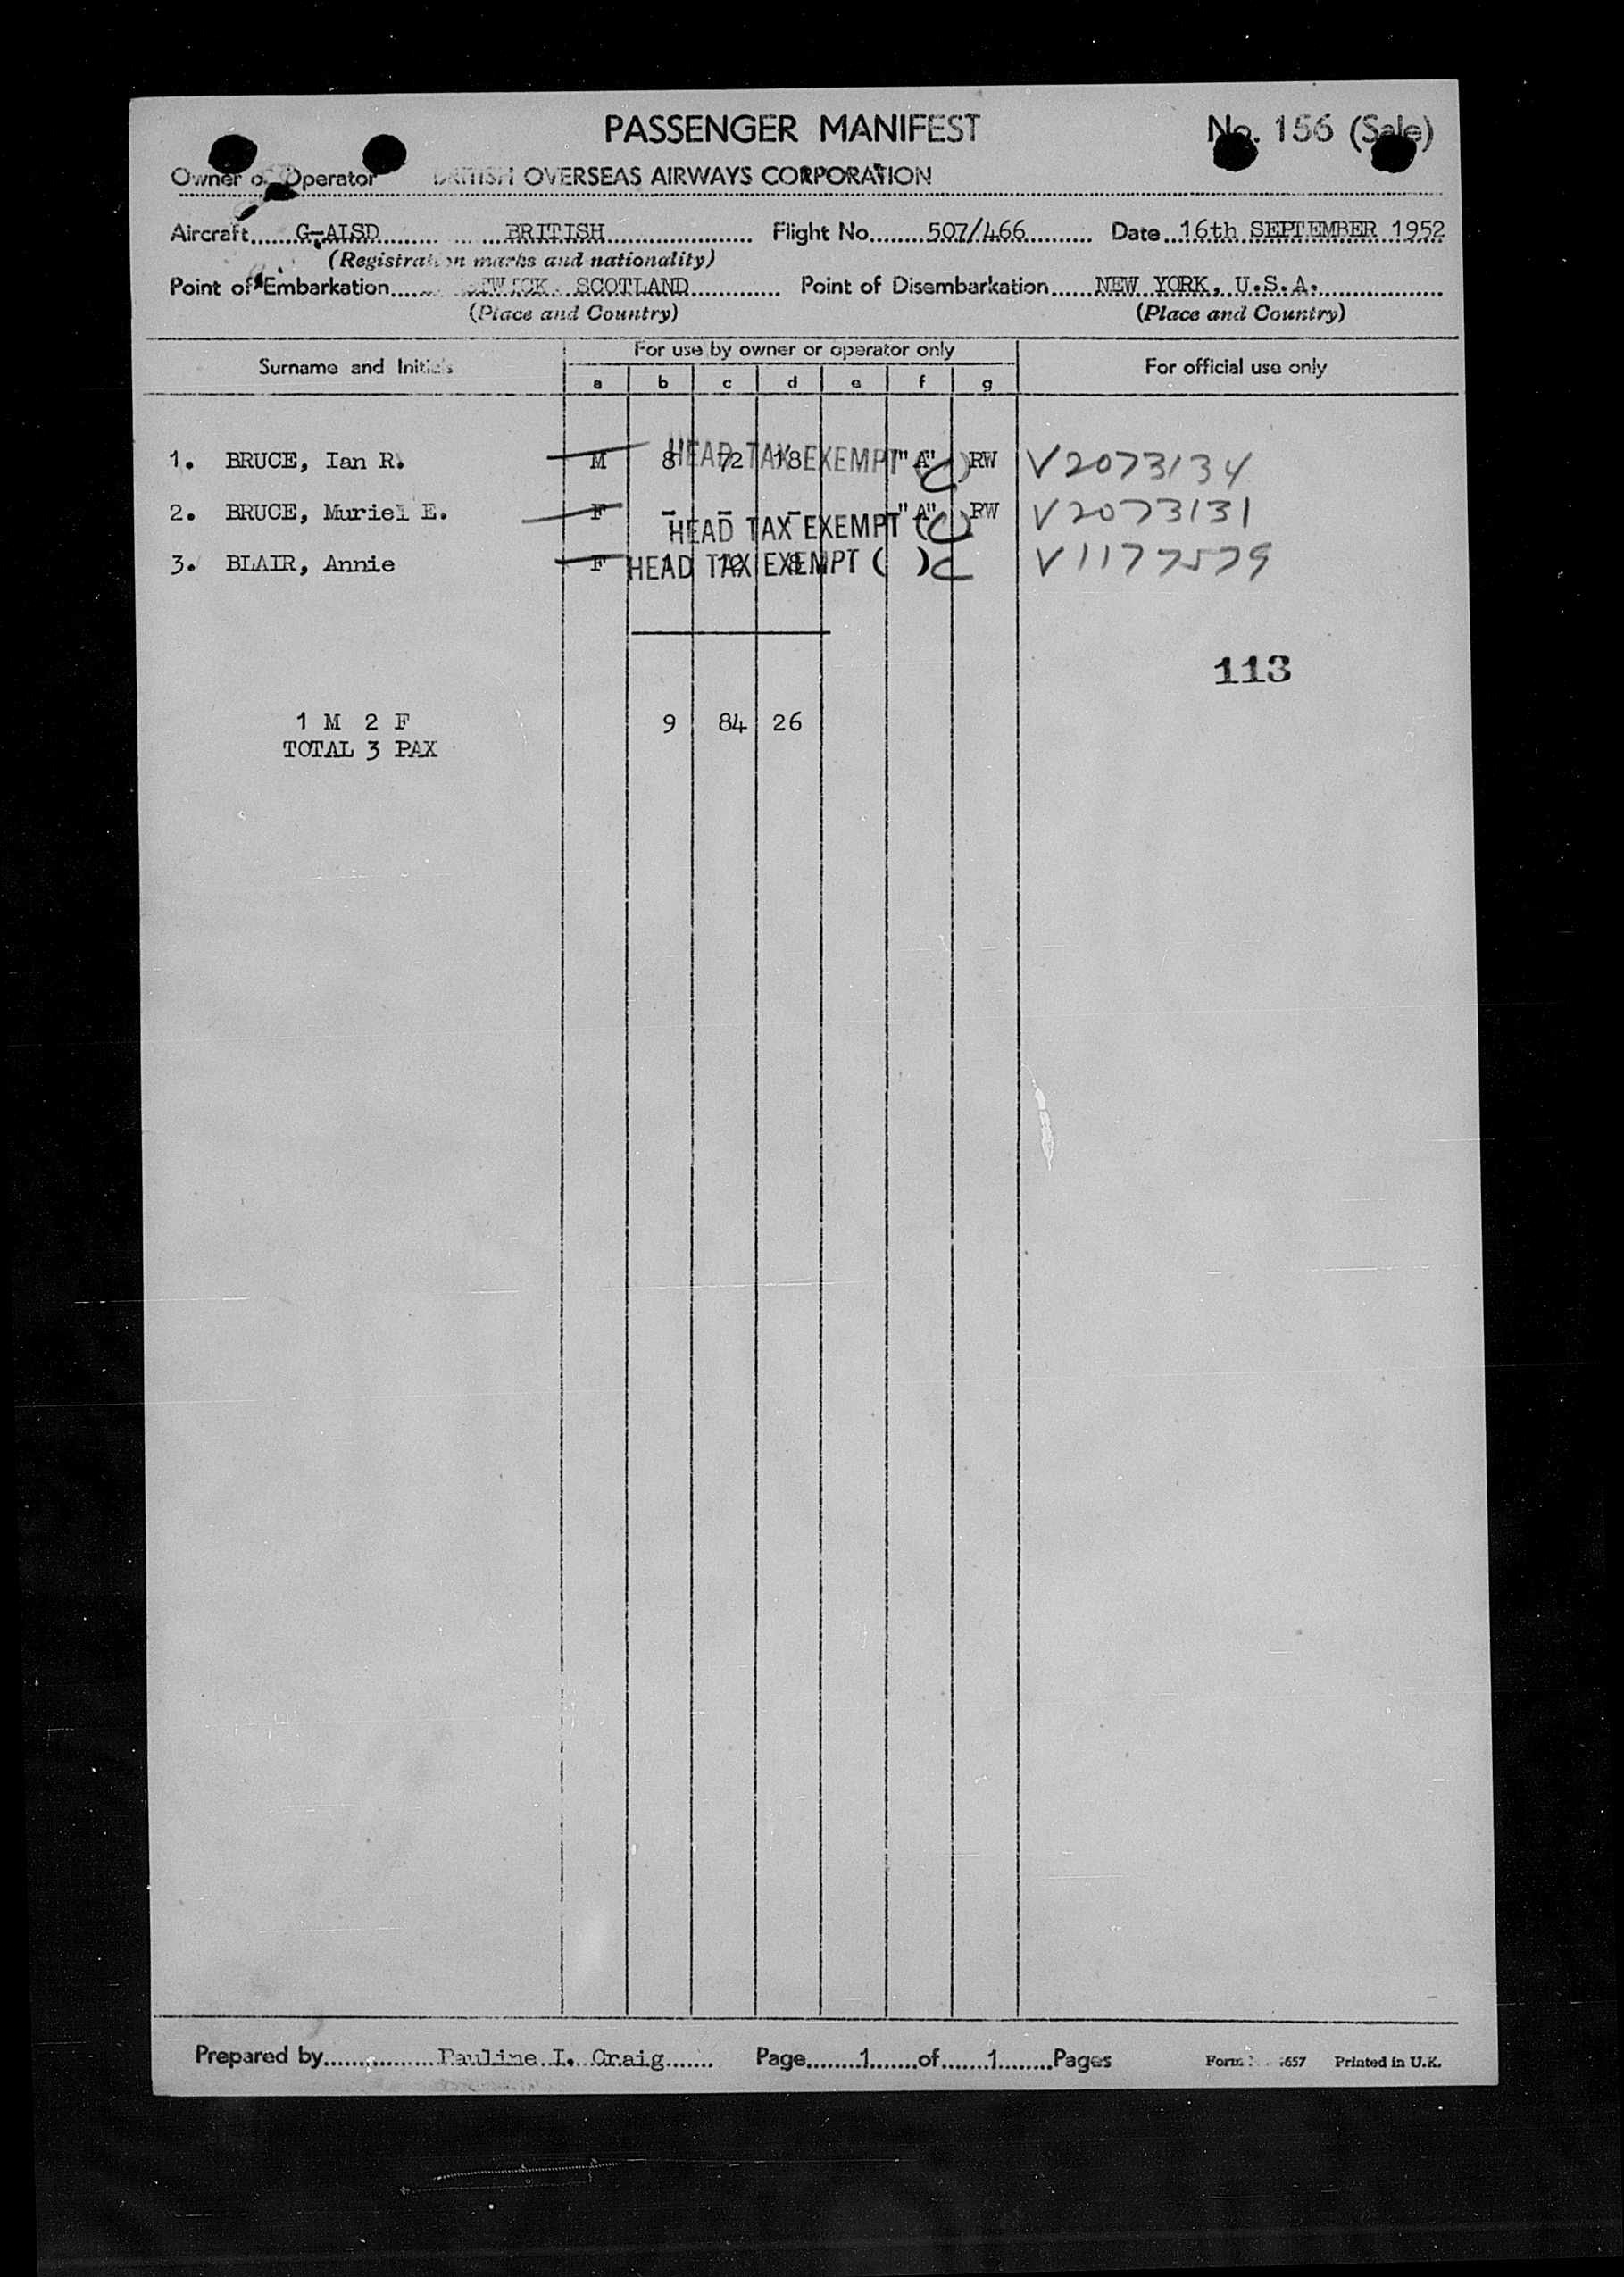 PASSENGER MANIFEST No. 156 (Sale)
Owner or Operator BRITISH OVERSEAS AIRWAYS CORPORATION
Aircraft G-ALSD BRITISH Flight No. 507/466 Date 16th SEPTEMBER 1952
(Registration marks and nationality)
Point of Embarkation SCOTLAND Point of Disembarkation NEW YORK, U.S.A.
(Place and Country) (Place and Country)
Surname and Initials For use by owner or operator only For official use only
a b c d e f g
1. BRUCE, Ian R. M 8 72 18 HEAD TAX EXEMPT "A" (C) RW V2073134
2. BRUCE, Muriel E. F - - - HEAD TAX EXEMPT "A" (C) RW V2073131
3. BLAIR, Annie F 1 8 HEAD TAX EXEMPT ( ) C V1177579
113
1 M 2 F 9 84 26
TOTAL 3 PAX
Prepared by Pauline I. Craig Page 1 of 1 Pages Form 657 Printed in U.K.